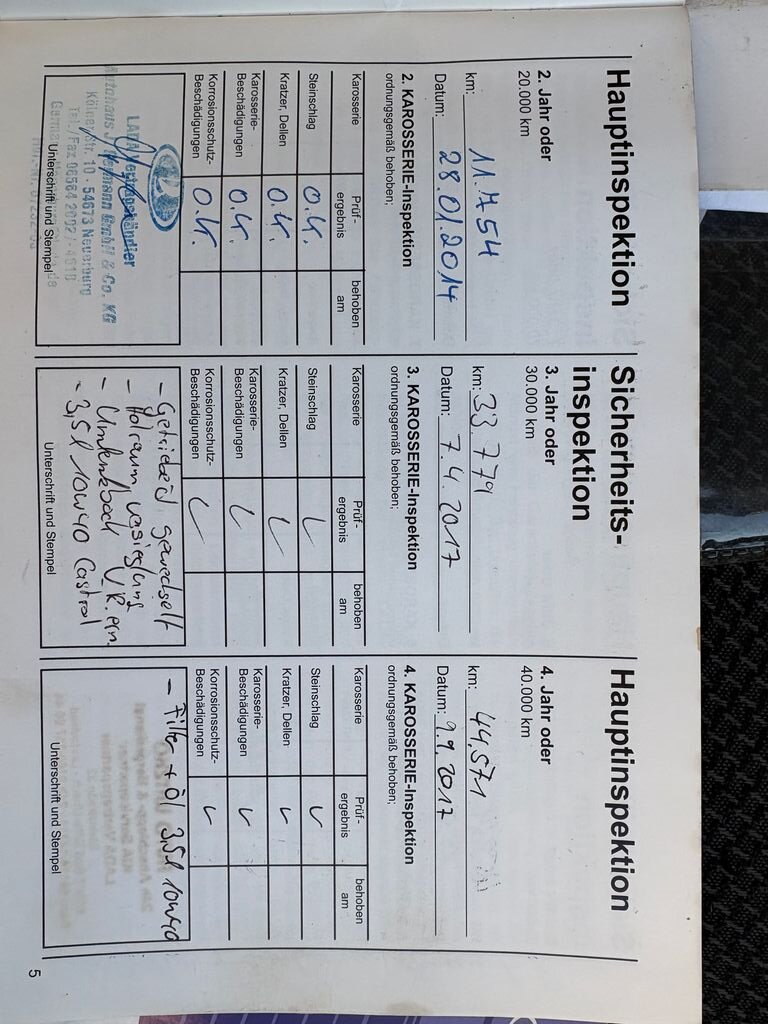 Hauptinspektion
2. Jahr oder
20.000 km
km: 11.754
Datum: 28.01.2014
2. KAROSSERIE-Inspektion
ordnungsgemäß behoben;
Karosserie Prüf-ergebnis behoben am
Steinschlag O.K.
Kratzer, Dellen O.K.
Karosserie-Beschädigungen O.K.
Korrosionsschutz-Beschädigungen O.K.
LADA Vertragshändler
GmbH & Co. KG
10 - 54673 Neuerburg
Unterschrift und Stempel
Sicherheits-
inspektion
3. Jahr oder
30.000 km
km: 33.779
Datum: 7.4.2017
3. KAROSSERIE-Inspektion
ordnungsgemäß behoben;
Karosserie Prüf-ergebnis behoben am
Steinschlag
Kratzer, Dellen
Karosserie-Beschädigungen
Korrosionsschutz-Beschädigungen
- Getriebeöl gewechselt
-
-
- 3,5l 10W40 Castrol
Unterschrift und Stempel
Hauptinspektion
4. Jahr oder
40.000 km
km: 44.571
Datum: 9.9.2017
4. KAROSSERIE-Inspektion
ordnungsgemäß behoben;
Karosserie Prüf-ergebnis behoben am
Steinschlag
Kratzer, Dellen
Karosserie-Beschädigungen
Korrosionsschutz-Beschädigungen
- Filter + Öl 3,5l 10W40
Unterschrift und Stempel
5